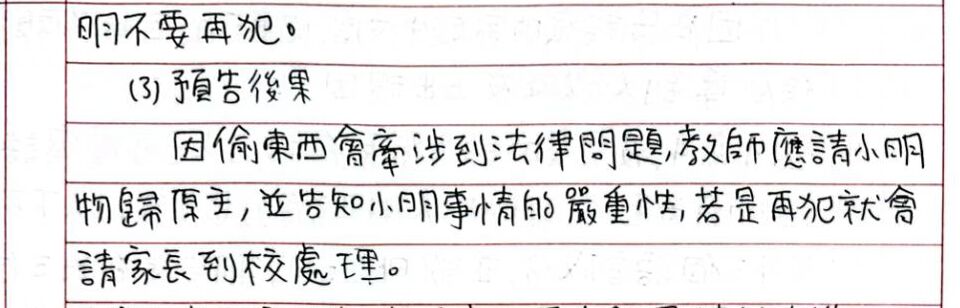 明不要再犯。
(3) 預告後果
因偷東西會牽涉到法律問題,教師應請小明
物歸原主,並告知小明事情的嚴重性,若是再犯就會
請家長到校處理。